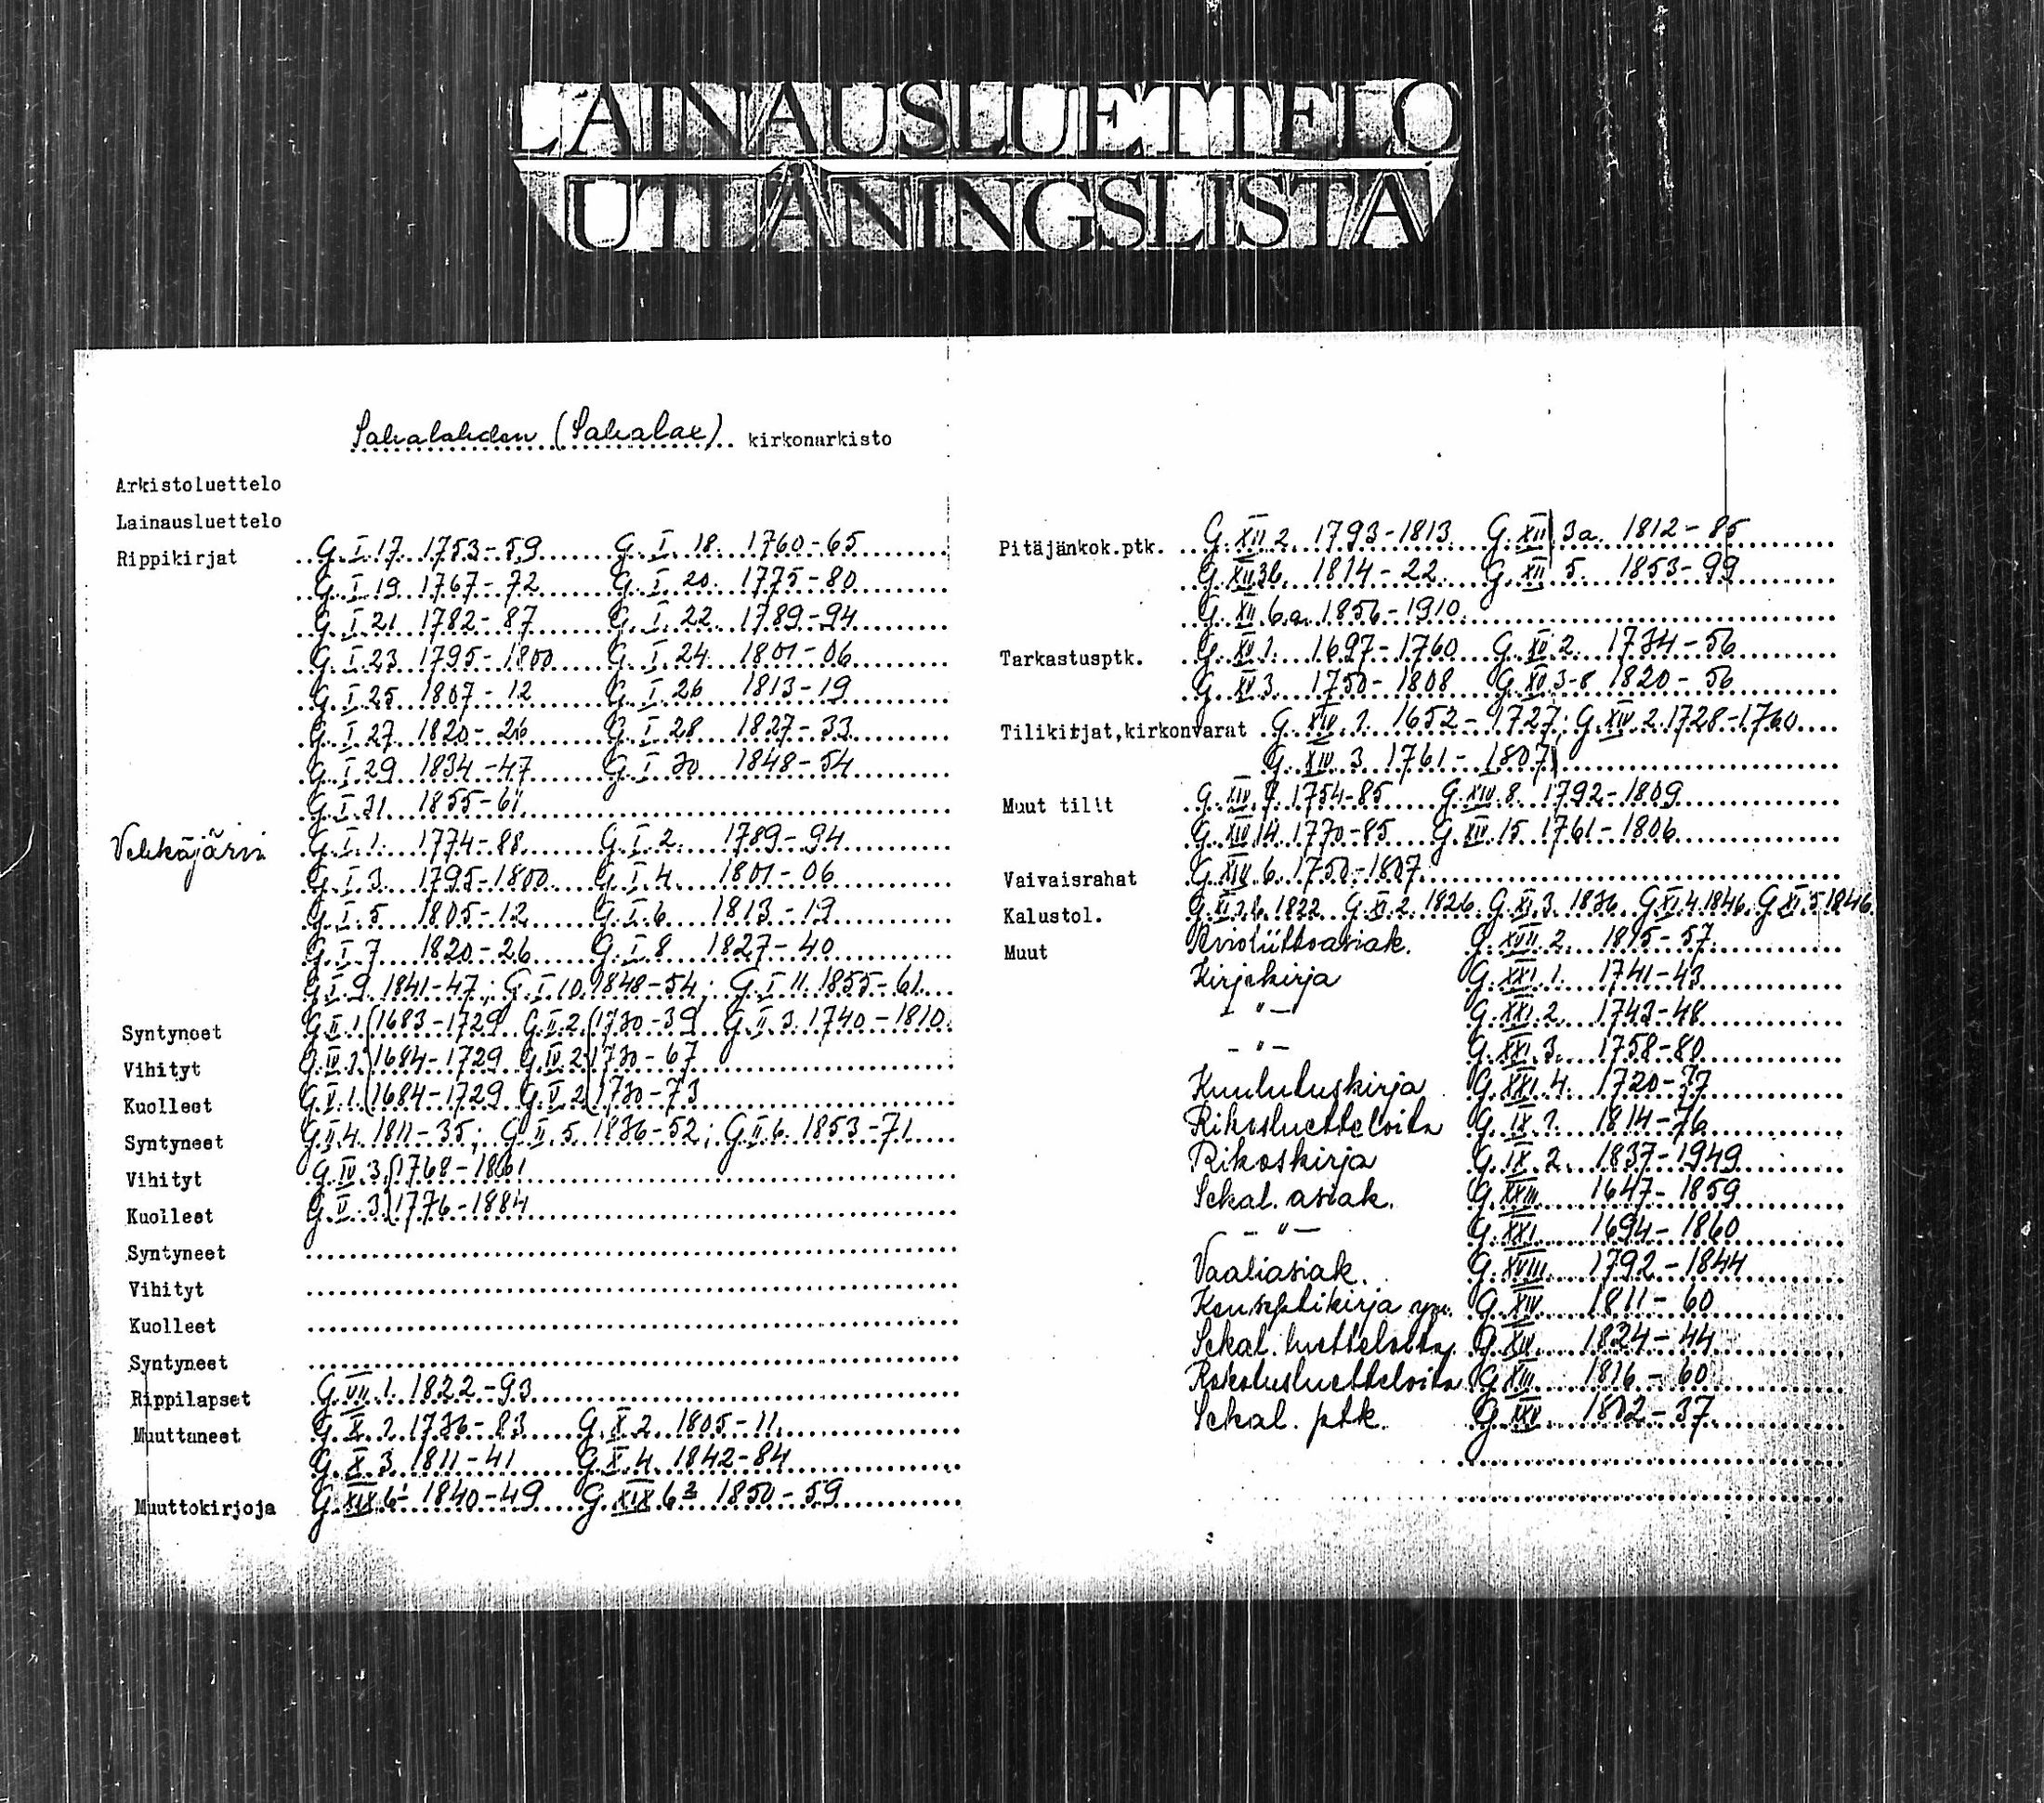 LAINAUSLUETTELO
UTLÅNINGSLISTA
Sahalahden (Sahalax) kirkonarkisto
Arkistoluettelo
Lainausluettelo
Rippikirjat G I 17 1753-59 G I 18 1760-65
G I 19 1767-72 G I 20 1775-80
G I 21 1782-87 G I 22 1789-94
G I 23 1795-1800 G I 24 1801-06
G I 25 1807-12 G I 26 1813-19
G I 27 1820-26 G I 28 1827-33
G I 29 1834-47 G I 30 1848-54
G I 31 1855-61
Vehkajärvi G I 1 1774-88 G I 2 1789-94
G I 3 1795-1800 G I 4 1801-06
G I 5 1805-12 G I 6 1813-19
G I 7 1820-26 G I 8 1827-40
G I 9 1841-47; G I 10 1848-54; G I 11 1855-61
Syntyneet G II 1 1683-1729 G II 2 1730-39 G II 3 1740-1810
Vihityt G IV 1 1684-1729 G IV 2 1730-67
Kuolleet G V 1 1684-1729 G V 2 1730-73
Syntyneet G II 4 1811-35; G II 5 1836-52; G II 6 1853-71
Vihityt G IV 3 1768-1861
Kuolleet G V 3 1776-1884
Syntyneet
Vihityt
Kuolleet
Syntyneet
Rippilapset G VII 1 1822-93
Muuttaneet G X 1 1786-83 G X 2 1805-11
G X 3 1811-41 G X 4 1842-84
Muuttokirjoja G XIX 6¹ 1840-49 G XIX 6² 1850-59
Pitäjänkok.ptk. G XII 2 1793-1813 G XII 3a 1812-85
G XII 3b 1814-22 G XII 5 1853-99
G XII 6a 1856-1910
Tarkastusptk. G XV 1 1697-1760 G XV 2 1734-56
G XV 3 1750-1808 G XV 3-8 1820-56
Tilikirjat,kirkonvarat G XIV 1 1652-1727; G XIV 2 1728-1760
G XIV 3 1761-1807
Muut tilit G XIV 7 1754-85 G XIV 8 1792-1809
G XIV 14 1770-85 G XIV 15 1761-1806
Vaivaisrahat G XIV 6 1750-1807
Kalustol. G XI 1b 1822 G XI 2 1826 G XI 3 1836 G XI 4 1846 G XI 5 1846
Muut Avioliittoasiak. G XVII 2 1815-57
Kirjekirja G XXI 1 1741-43
- " - G XXI 2 1743-48
- " - G XXI 3 1758-80
Kuulutuskirja G XXI 4 1720-77
Rikosluetteloita G IX 1 1814-76
Rikoskirja G IX 2 1837-1949
Sekal. asiak. G XXIII 1647-1859
- " - G XXI 1694-1860
Vaaliasiak. G XVIII 1792-1844
Konseptikirja ym. G XIV 1811-60
Sekal. luetteloita G XV 1824-44
Rokotusluetteloita G XIII 1816-60
Sekal. ptk. G XXV 1802-37